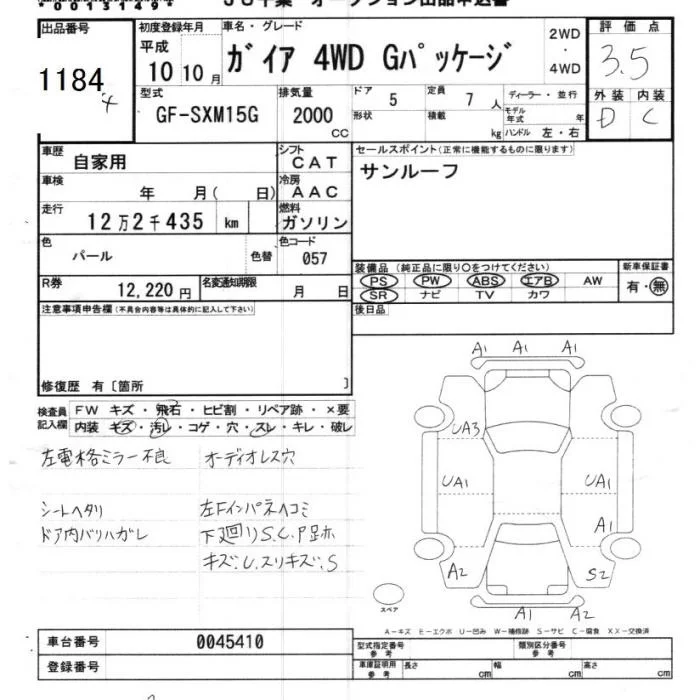 00131494 JU千葉 オークション出品申込書
出品番号 初度登録年月 車名・グレード 評価点
1184 平成 10 10月 ガイア 4WD Gパッケージ 2WD・4WD 3.5
4
型式 排気量 ドア 5 定員 7 人 ディーラー・並行 外装 内装
GF-SXM15G 2000 CC 形状 積載 kg モデル年式 年 D C
ハンドル 左・右
車歴 自家用 シフト CAT セールスポイント(正常に機能するものに限ります)
車検 年 月( 日) 冷房 AAC サンルーフ
走行 12万2千435 km 燃料 ガソリン
色 パール 色替 色コード 057
装備品 (純正品に限り○をつけてください) 新車保証書
PS PW ABS エアB AW 有・無
SR ナビ TV カワ
R券 12,220円 名変通知期限 月 日
後日品
注意事項申告欄(不具合内容等は具体的に記入して下さい)
修復歴 有〔箇所 〕
検査員記入欄 FW キズ・飛石・ヒビ割・リペア跡・×要
内装 キズ・汚レ・コゲ・穴・スレ・キレ・破レ
左電格ミラー不良 オーディオレス穴
シートヘタリ 左Fインパネヘコミ
ドア内バリハガレ 下廻りS.C.P跡ホ
キズ:U.スリキズ:S
A1 A1 A1
UA3
UA1 UA1
A1
A2 S2
A1 A2
スペア
A-キズ E-エクボ U-凹み W-補修跡 S-サビ C-腐食 XX-交換済
車台番号 0045410
型式指定番号 参考 類別区分番号 参考
登録番号
車庫証明用 参考 長さ cm 幅 cm 高さ cm